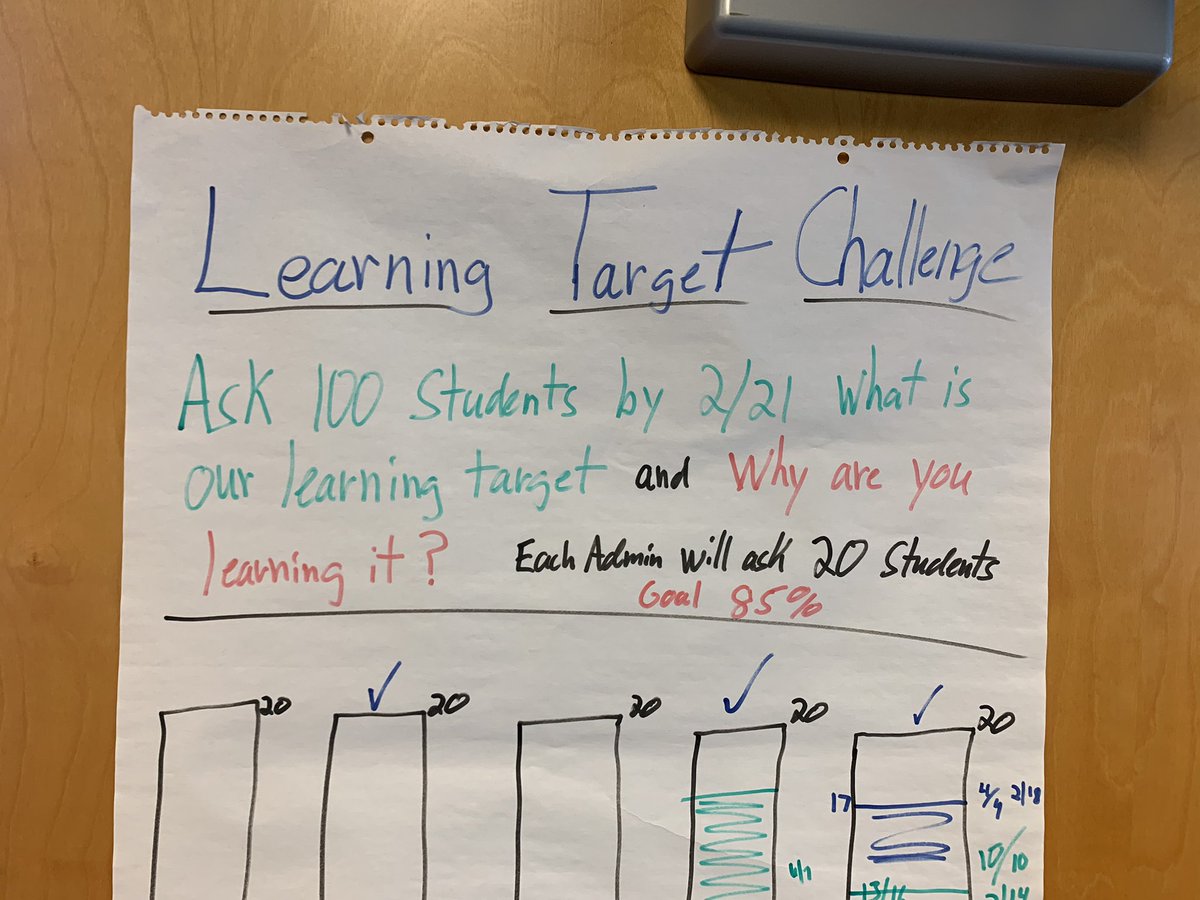 Learning Target Challenge
Ask 100 Students by 2/21 What is
our learning target and Why are you
learning it? Each Admin will ask 20 Students
Goal 85%
20 ✓ 20 20 ✓ 20 ✓ 20
17 4/4 2/18
10/10
2/14